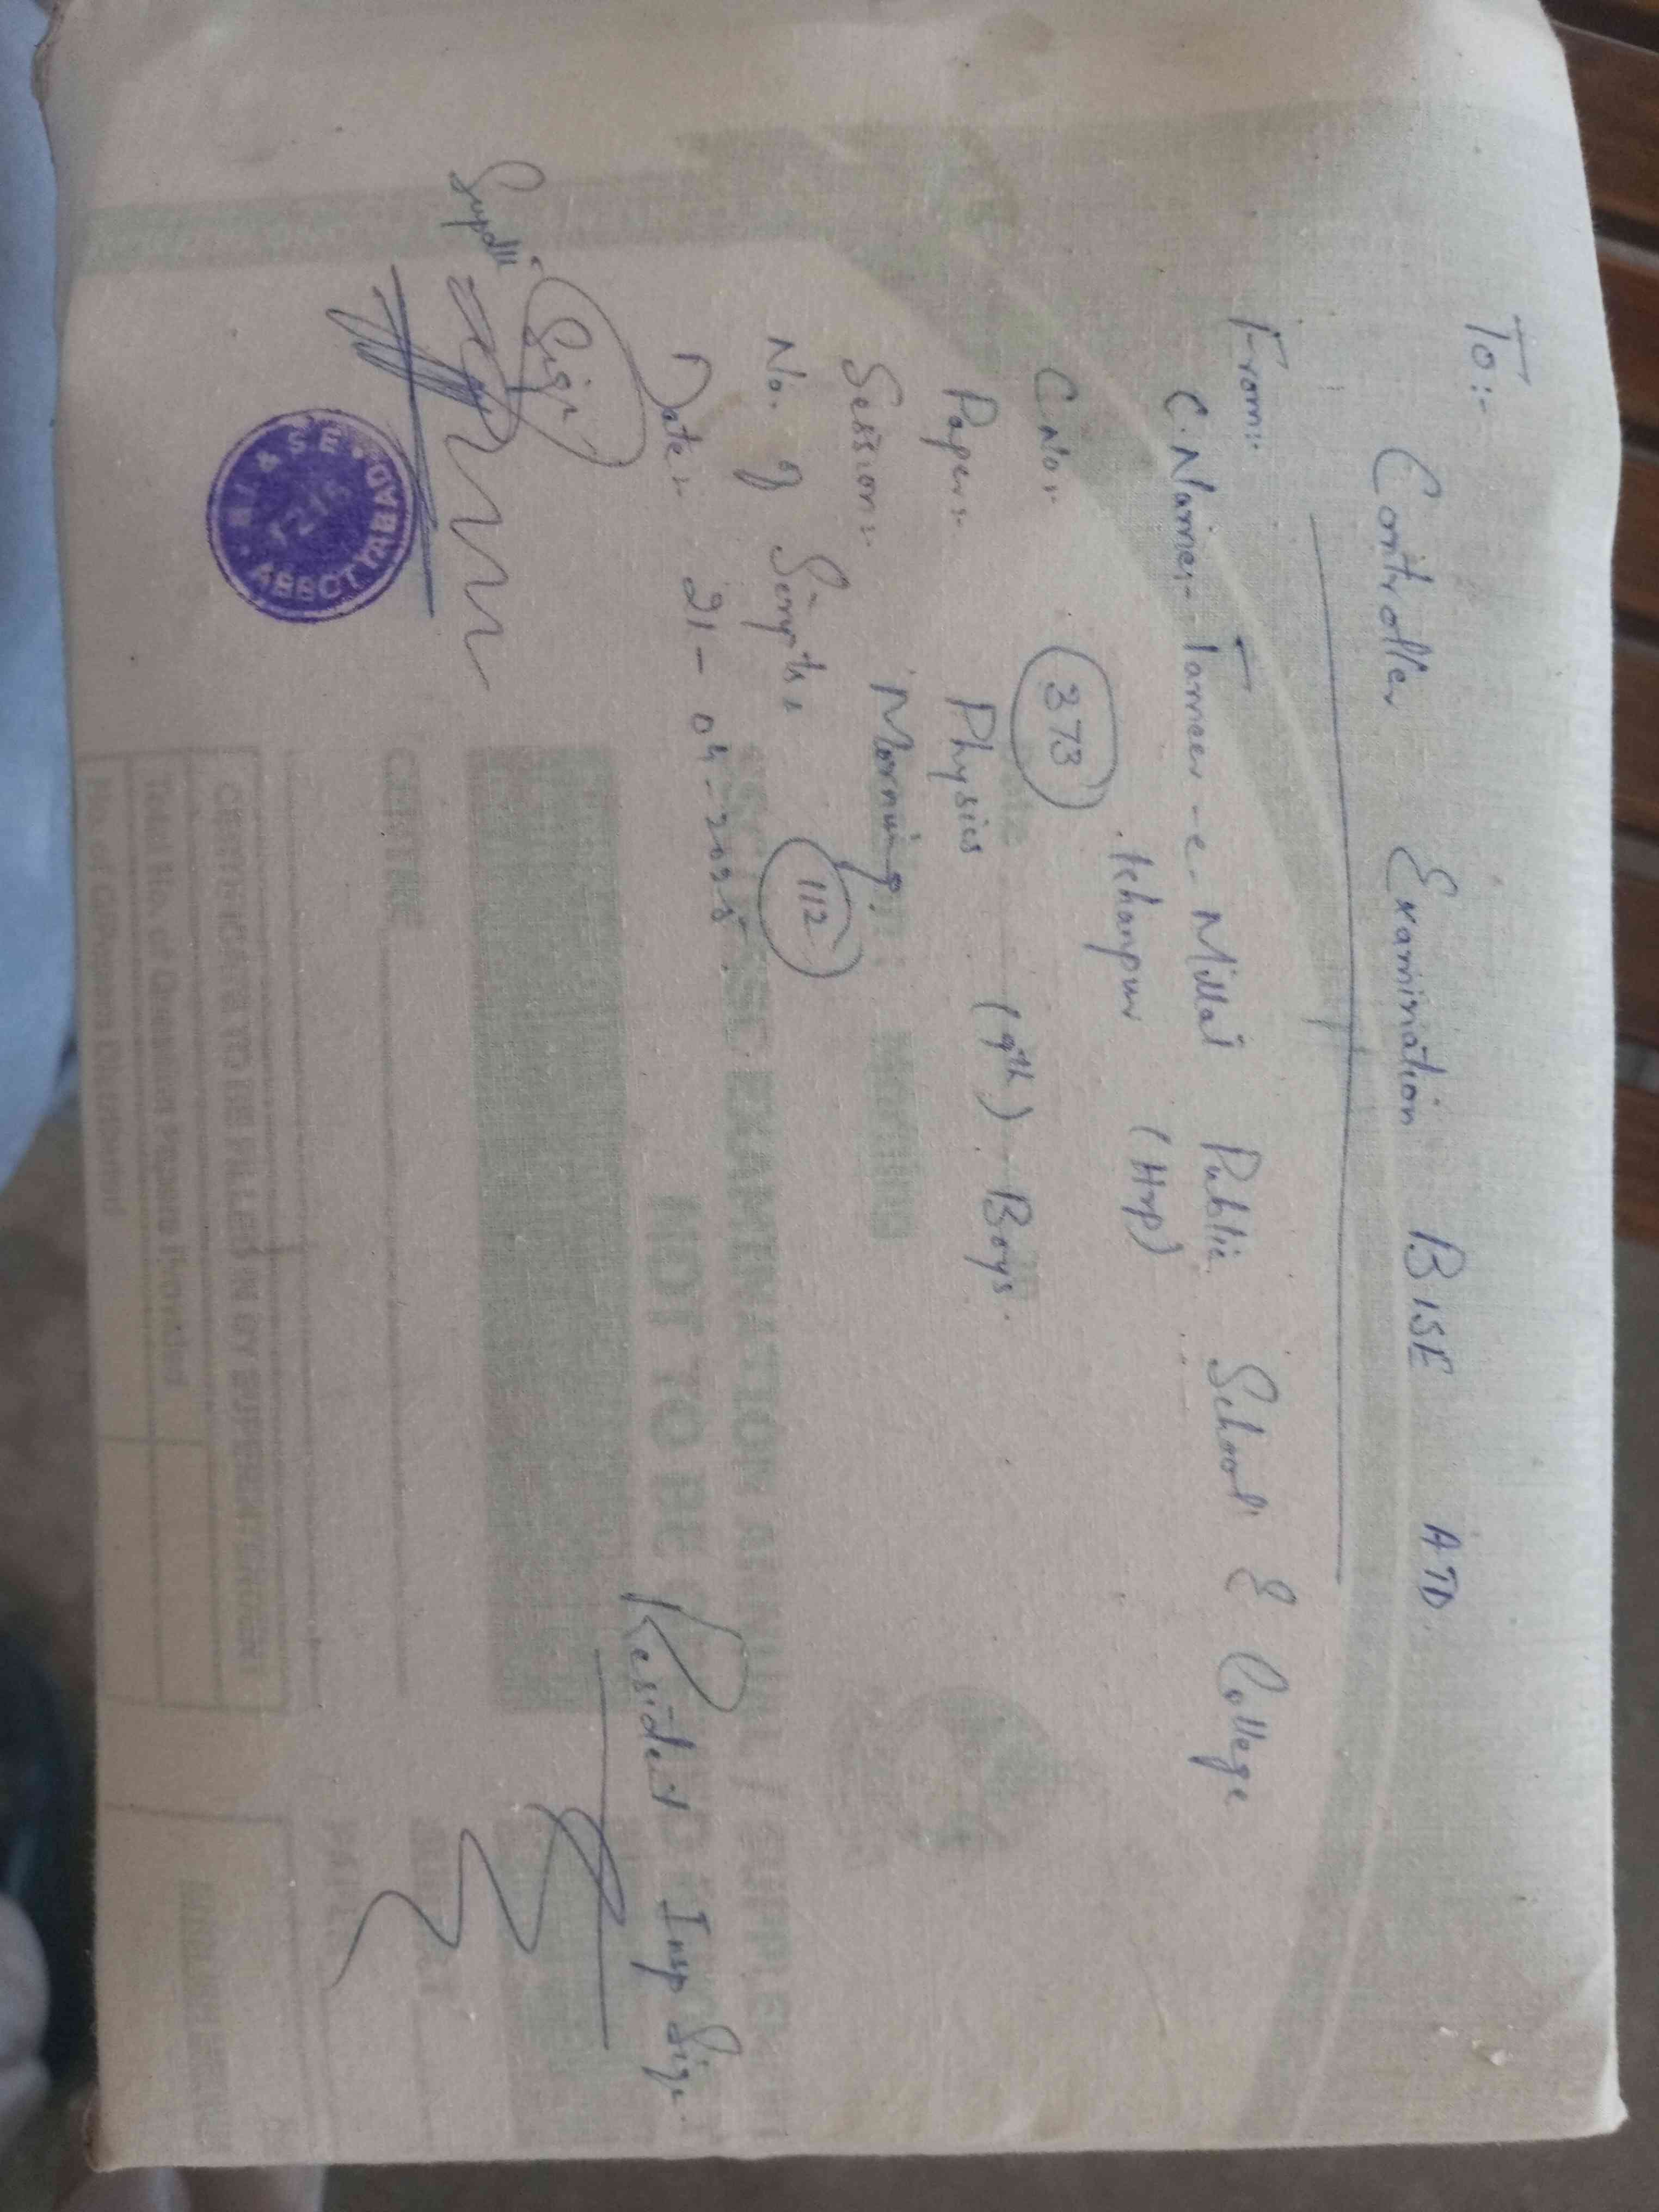 To:-
Controller Examination BISE ATD.
From:-
C.Name:- Tameer-e-Millat Public School & College
(Hrp)
C No:- 373
Paper:- Physics (9th) Boys.
Session:- Morning.
No. of Scripts:- 112
Date:- 21-04-2025
Supdtt: Sign
Resident Insp Sign
B.I & S.E. ABBOTTABAD
CENTRE
CERTIFICATE TO BE FILLED IN BY SUPERINTENDENT
Total No. of Question Papers Provided
No. of Question Distributed
NOT TO BE